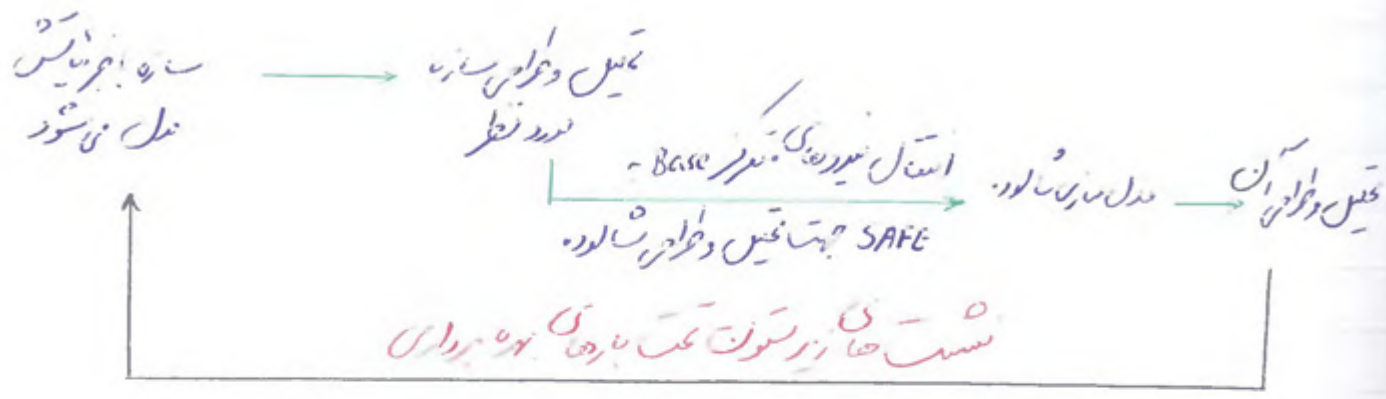 سازه بافر نیایش
مدل می‌شود
تحلیل و طراحی سازه
مورد نظر
انتقال نیروهای متمرکز Base به
SAFE جهت تحلیل و طراحی شالوده
مدل سازی شالوده
تحلیل و طراحی آن
نشست های زیر ستون تحت بارهای بهره برداری